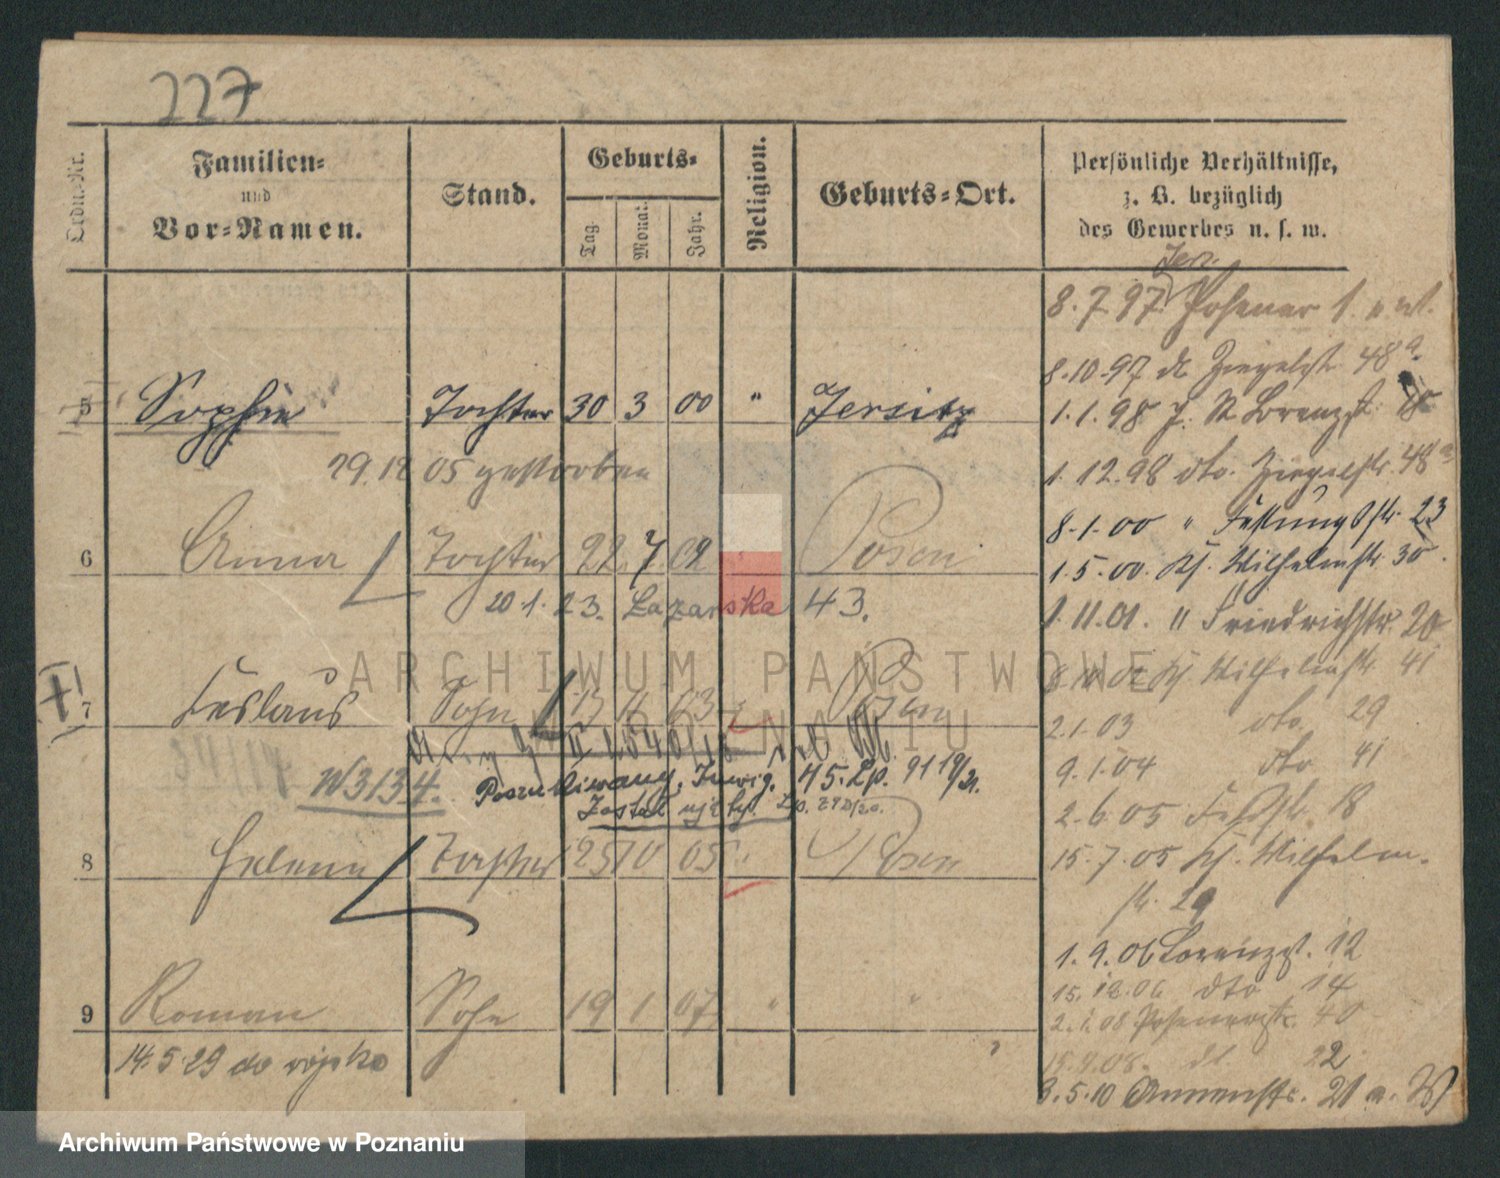 227
Ordn.-Nr.
Familien-
und
Vor-Namen.
Stand.
Geburts-
Tag.
Monat.
Jahr.
Religion.
Geburts-Ort.
Persönliche Verhältnisse,
z. B. bezüglich
des Gewerbes u. s. w.
5 Sophie Tochter 30 3 00 " Jersitz
29.12 05 gestorben
6 Anna Tochter 22 7 02 Posen
20 1. 23. Lazarska 43.
7 Ceslaus Sohn 17 11 03 Posen
W3134.
Poszukiwany. Inwig. 45. Lp. 91 19/21.
Został ujęty. Lp.
8 Helena Tochter 25 10 05 " Posen
9 Roman Sohn 19 1 07 " "
14.5 29 do wojska
Jers.
8.7.97. Posener
8.10.97 Ziegelstr. 48a.
1.1.98 J. St Lorenzst.
1.12.98 dto. Ziegelstr. 48a
8.1.00 " Festungsstr. 23
1.5.00. Wilhelmstr. 30.
1.11.01. " Friedrichstr. 20
Wilhelmstr 41
2.1.03 dto. 29
9.1.04 dto 41
2.6.05 Feldstr. 18
15.7.05 Wilhelm-
str. 29
1.9.06 Lorenzst. 12
15.12.06 dto 14
2.1.08 Posenerstr. 40
22
3.5.10 Annenstr. 21
ARCHIWUM PAŃSTWOWE
W POZNANIU
Archiwum Państwowe w Poznaniu